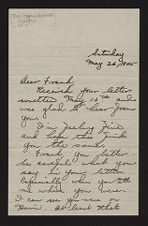 Saturday
May 26, 1945
Dear Frank,
Received your letter
written May 15th and
was glad to hear from
you.
I'm feeling fine
and hope this finds
you the same.
Frank, you better
be careful what you
say in your letter
Especially when you tell
me where you were.
I can see you were on
At least that's